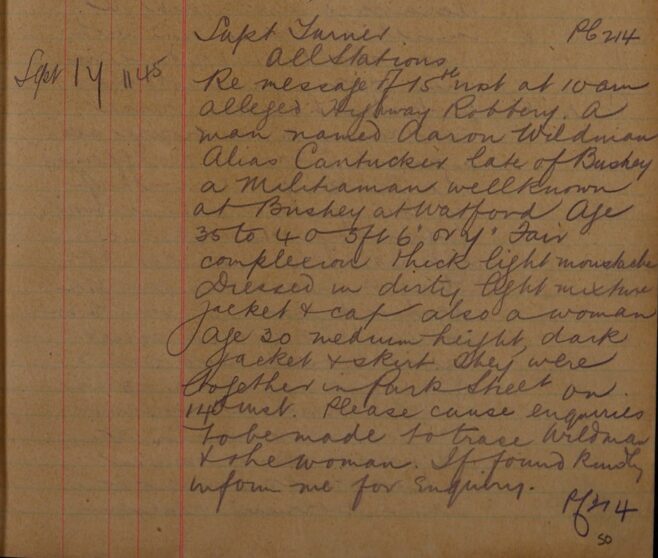 Supt Turner PC 214
All Stations
Sept 17 1145
Re message of 15th inst at 10 am
alleged Highway Robbery. A
man named Aaron Wildman
Alias Cantucker late of Bushey
a Militiaman wellknown
at Bushey at Watford Age
35 to 40 5ft 6" or 7" Fair
complexion thick light moustache
dressed in dirty light mixture
jacket & cap also a woman
age 30 medium height, dark
jacket & skirt they were
together in Park Street on
14th inst. Please cause enquiries
to be made to trase Wildman
& the woman. If found kindly
inform me for Enquiry.
PC 214
50